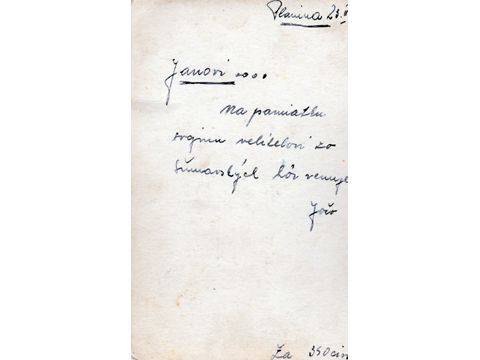 Planina 23.
Janovi ....
Na pamiatku
svojmu veliteľovi zo
šumavských hôr venuje
Jožo
Za 350